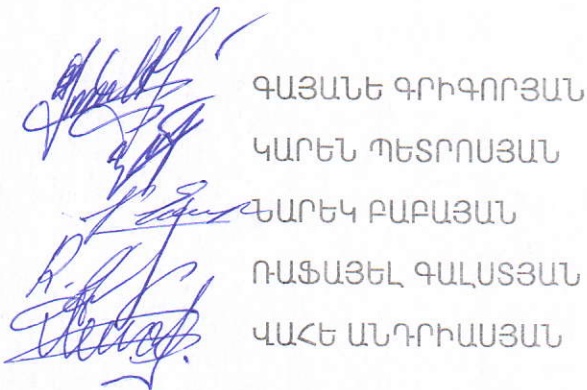 ԳԱՅԱՆԵ ԳՐԻԳՈՐՅԱՆ
ԿԱՐԵՆ ՊԵՏՐՈՍՅԱՆ
ՆԱՐԵԿ ԲԱԲԱՅԱՆ
ՌԱՖԱՅԵԼ ԳԱԼՍՏՅԱՆ
ՎԱՀԵ ԱՆԴՐԻԱՍՅԱՆ